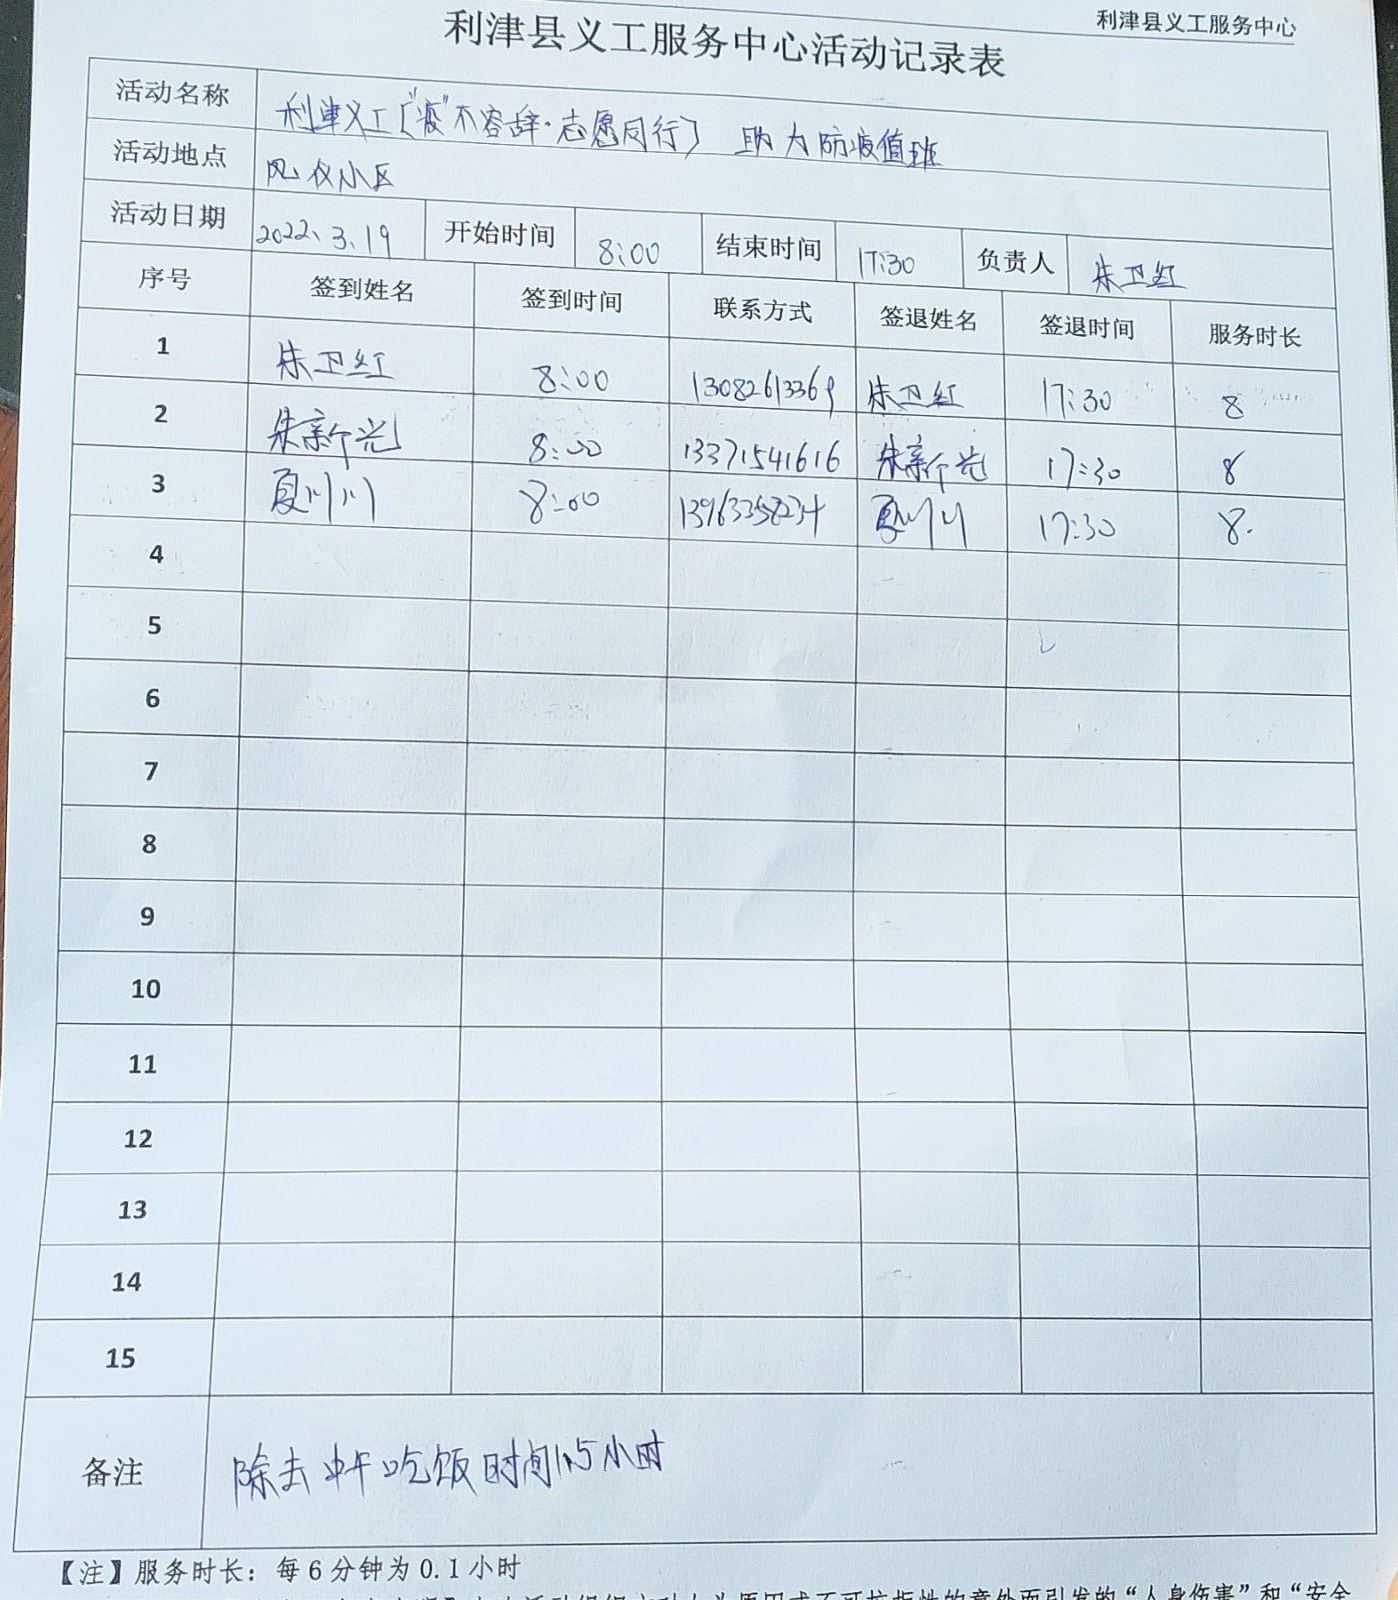 利津县义工服务中心
利津县义工服务中心活动记录表
活动名称 利津义工〔"疫"不容辞·志愿同行〕 助力防疫值班
活动地点 凤仪小区
活动日期 2022、3、19 开始时间 8:00 结束时间 17:30 负责人 朱卫红
序号 签到姓名 签到时间 联系方式 签退姓名 签退时间 服务时长
1 朱卫红 8:00 13082613369 朱卫红 17:30 8
2 朱新光 8:00 13371541616 朱新光 17:30 8
3 夏川川 8:00 13963358234 夏川川 17:30 8.
4
5
6
7
8
9
10
11
12
13
14
15
备注 除去中午吃饭时间1.5小时
【注】服务时长：每6分钟为0.1小时
的意外而引发的“人身伤害”和“安全